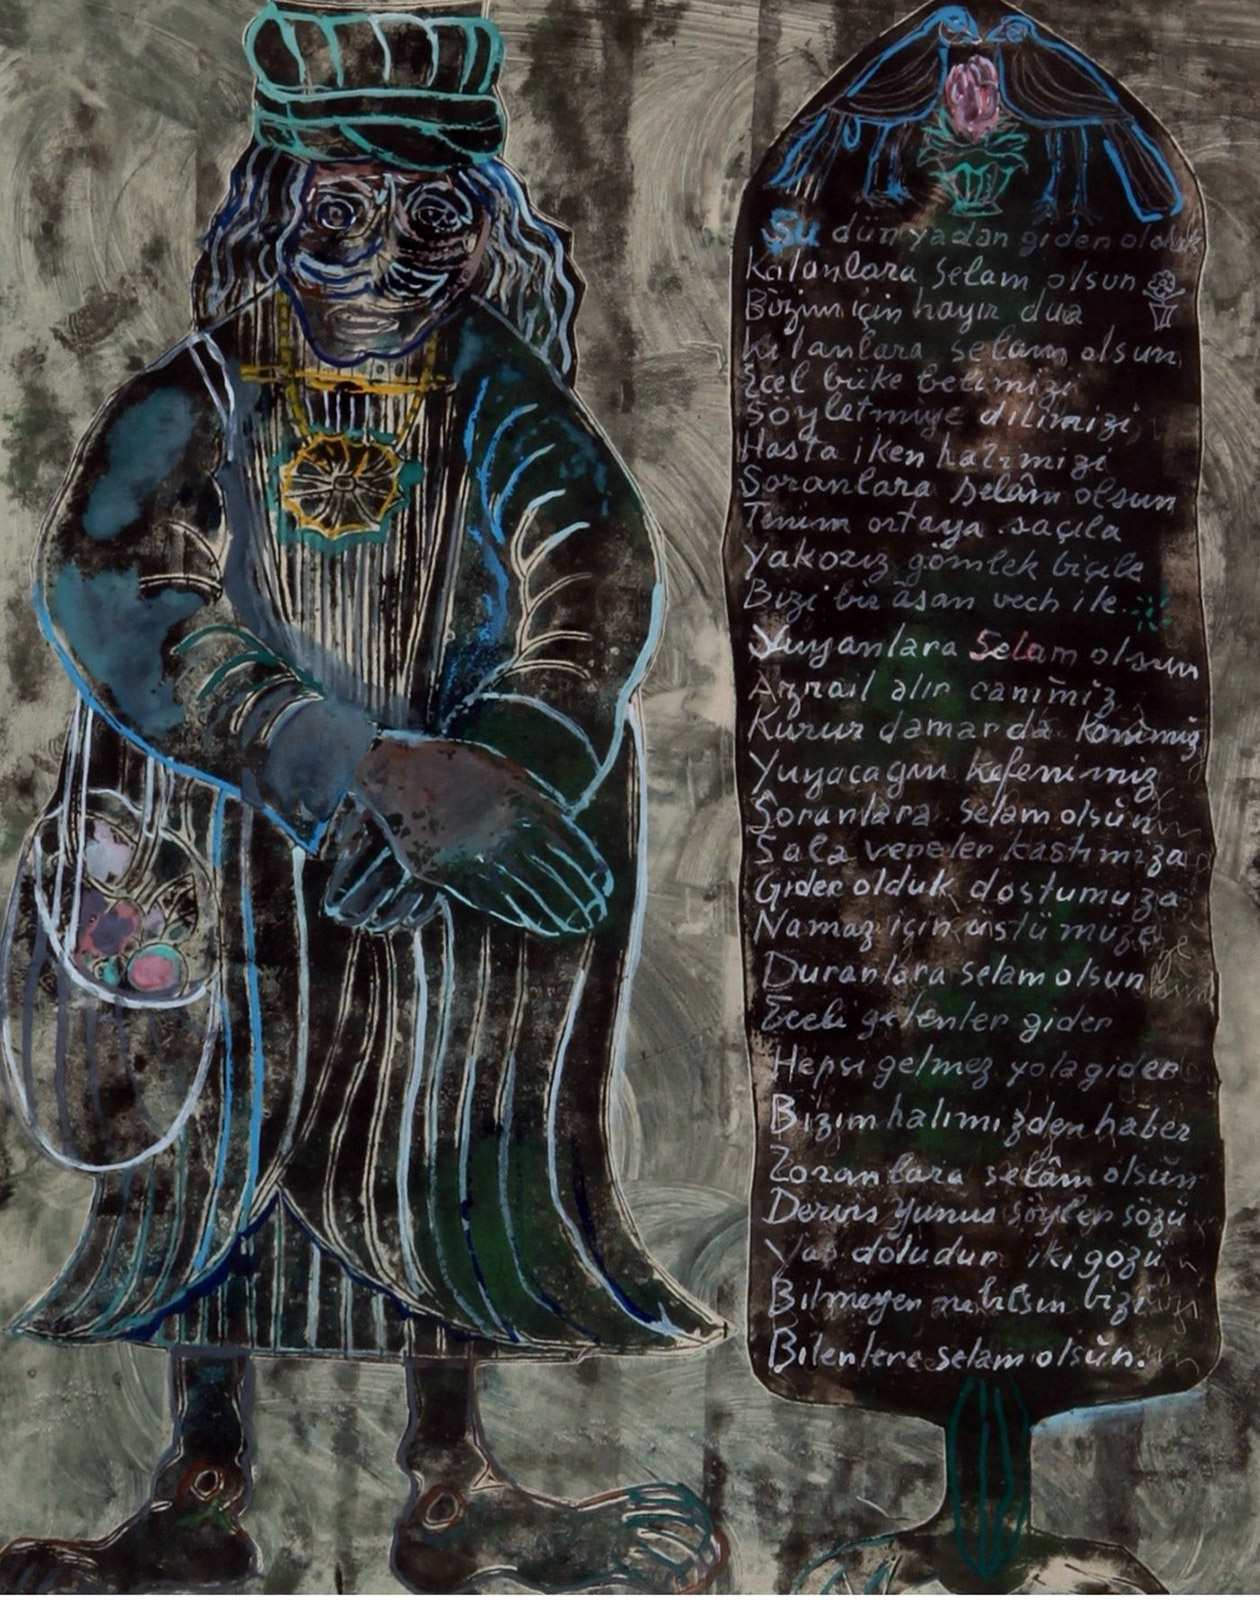 Şu dünyadan giden olduk
Kalanlara selam olsun
Bizim için hayır dua
kılanlara selam olsun
Ecel büke belimizi
Söyletmiye dilimizi
Hasta iken halımizi
Soranlara selâm olsun
Tenim ortaya saçıla
Yakozız gömlek biçile
Bizi bir âsan vech ile
Yuyanlara Selam olsun
Azrail alır canımız
Kurur damarda kanımız
Yuyacağın kefenimiz
Soranlara selam olsun
Sala verenler kastımıza
Gider olduk dostumuza
Namaz için üstümüze
Duranlara selam olsun
Eceli gelenler gider
Hepsi gelmez yola gider
Bizim halımızden haber
Zoranlara selâm olsun
Dervis Yunus söyler sözü
Yas doludur iki gözü
Bilmeyen ne bilsin bizi
Bilenlere selam olsun.